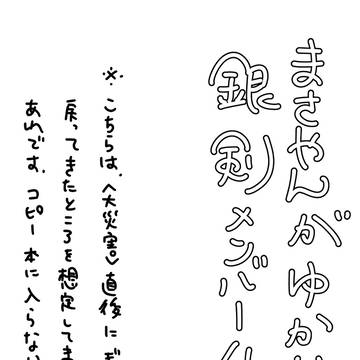 まさやんがゆか
銀剣メンバー
※こちらは、〈大災害〉直後に
戻ってきたところを想定してま
あれです。コピー本に入らない